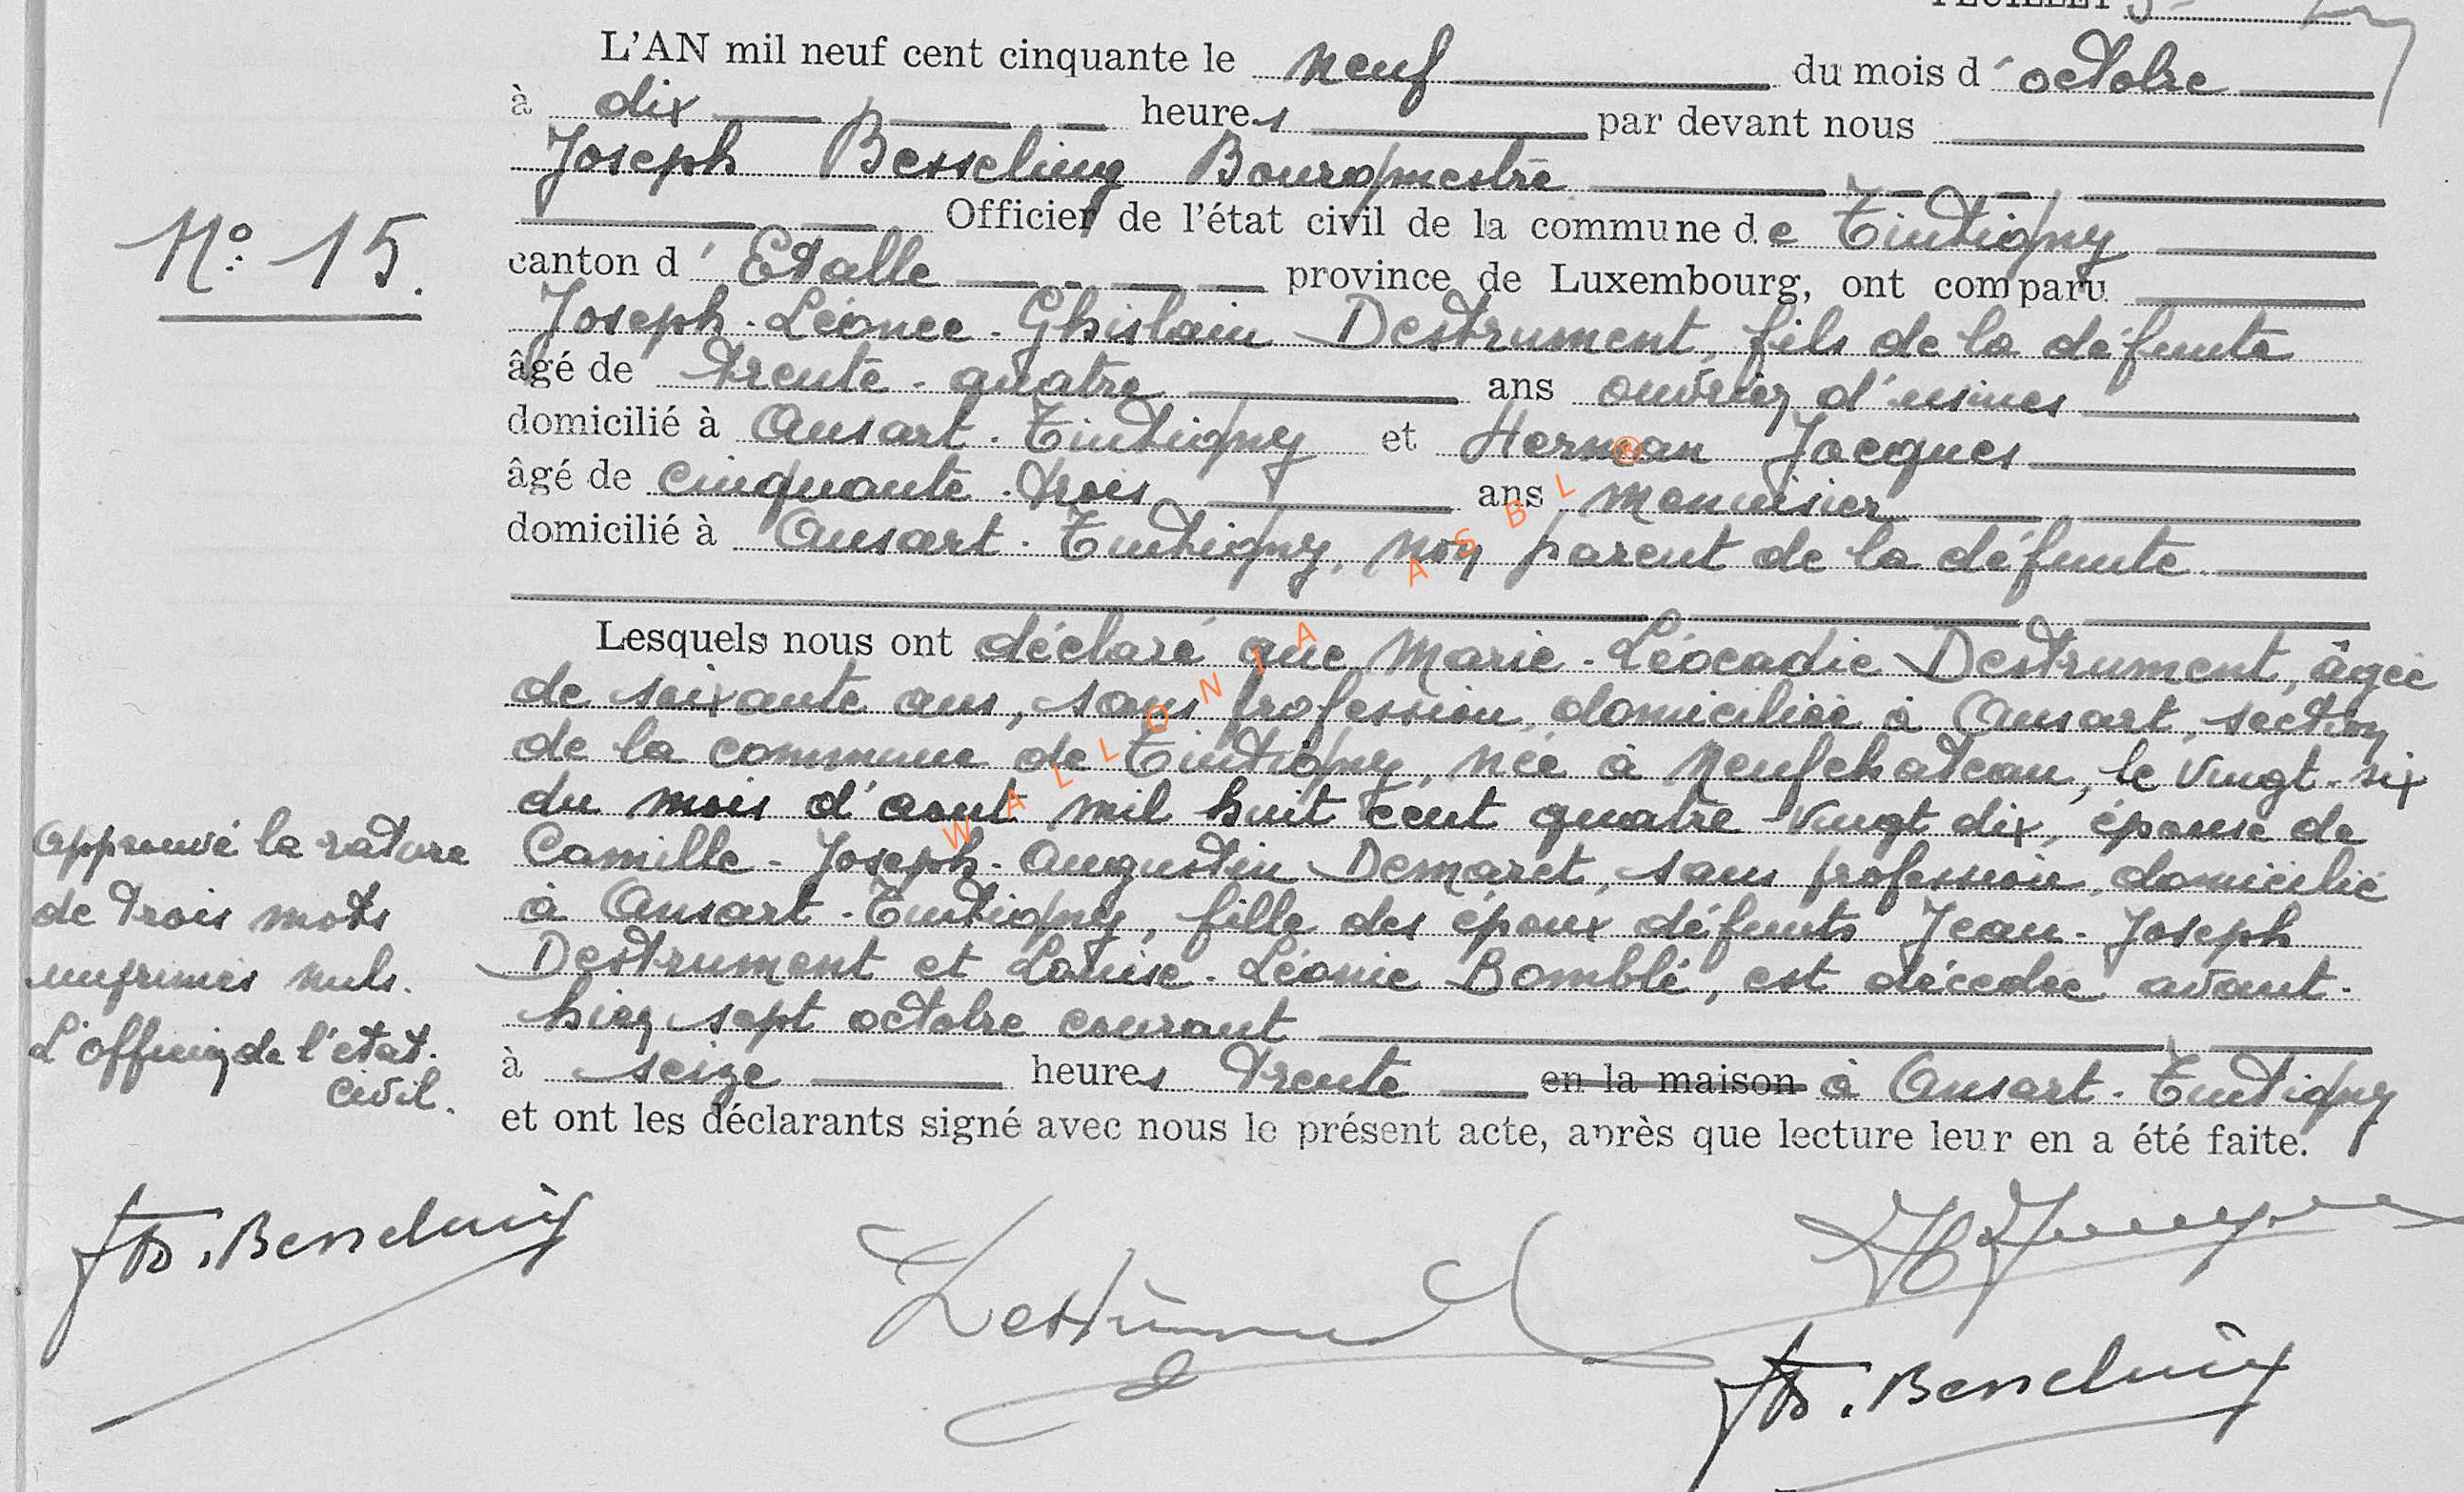 FEUILLET 5
L'AN mil neuf cent cinquante le neuf du mois d'octobre
à dix heures par devant nous
Joseph Besseling Bourgmestre
Officier de l'état civil de la commune de Tintigny
N° 15.
canton d'Etalle province de Luxembourg, ont comparu
Joseph-Léonce-Ghislain Destrument, fils de la défunte
âgé de trente-quatre ans ouvrier d'usines
domicilié à Ansart-Tintigny et Herman Jacques
âgé de cinquante-trois ans menuisier
domicilié à Ansart-Tintigny, non parent de la défunte
Lesquels nous ont déclaré que Marie-Léocadie Destrument, âgée
de soixante ans, sans profession, domiciliée à Ansart, section
de la commune de Tintigny, née à Neufchateau, le vingt-six
du mois d'aout mil huit cent quatre-vingt dix, épouse de
Camille-Joseph-Augustin Demaret, sans profession, domicilié
à Ansart-Tintigny, fille des époux défunts Jean-Joseph
Destrument et Louise-Léonie Bomblé, est décédée avant-
hier sept octobre courant
à seize heures trente en la maison à Ansart-Tintigny
et ont les déclarants signé avec nous le présent acte, après que lecture leur en a été faite.
Approuvé la rature
de trois mots
imprimés nuls.
L'officier de l'état-
civil.
WALLONIA ASBL ®
Jos. Besseling
Destrument
H Jacques
Jos. Besseling